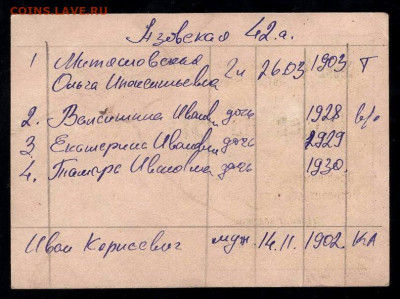 СОИНС.ЛАВ.RU
Язовская 42.а.
1 Митясловская
Ольга Инокентьевна гл 26.03 1903 Т
2. Валентина Иванов дочь 1928
3 Екатерина Иванов дочь 1929
4. Тамара Ивановна дочь 1930.
Иван Корнеевич муж 14.11. 1902. КА